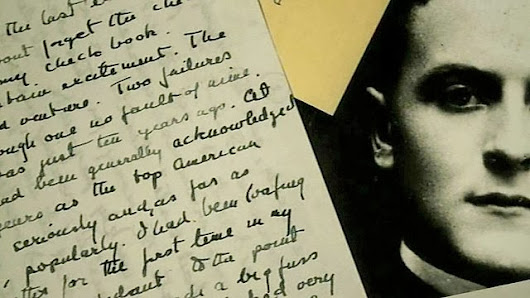 the last
out forget the che
my check book.
tain excitement. The
d venture. Two failures
ough one no fault of mine.
as just ten years ago. At
ad been generally acknowledged
ears as the top American
seriously and, as far as
popularly. I had been loafing
for the first time in my
to the point
a big fuss
very